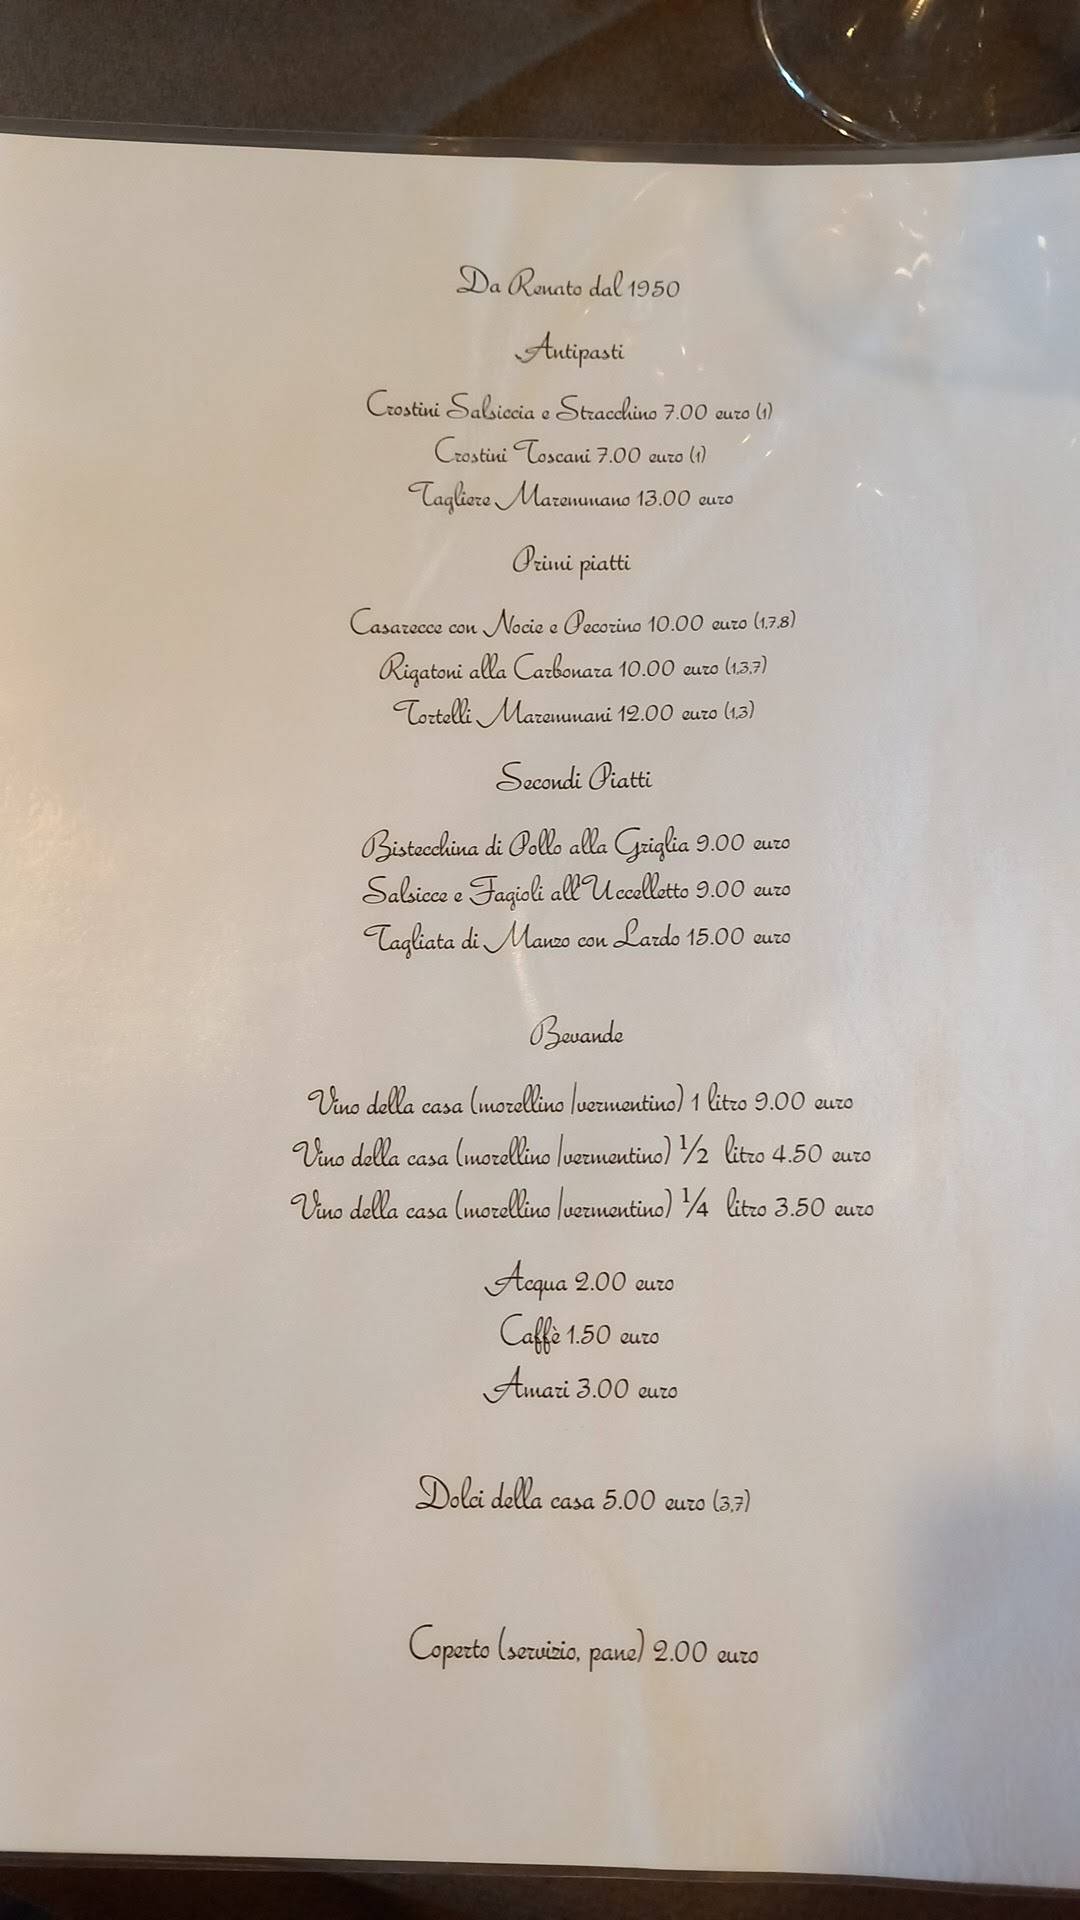 Da Renato dal 1950
Antipasti
Crostini Salsiccia e Stracchino 7.00 euro (1)
Crostini Toscani 7.00 euro (1)
Tagliere Maremmano 13.00 euro
Primi piatti
Casarecce con Nocie e Pecorino 10.00 euro (1,7,8)
Rigatoni alla Carbonara 10.00 euro (1,3,7)
Tortelli Maremmani 12.00 euro (1,3)
Secondi Piatti
Bistecchina di Pollo alla Griglia 9.00 euro
Salsicce e Fagioli all'Uccelletto 9.00 euro
Tagliata di Manzo con Lardo 15.00 euro
Bevande
Vino della casa (morellino /vermentino) 1 litro 9.00 euro
Vino della casa (morellino /vermentino) ½ litro 4.50 euro
Vino della casa (morellino /vermentino) ¼ litro 3.50 euro
Acqua 2.00 euro
Caffè 1.50 euro
Amari 3.00 euro
Dolci della casa 5.00 euro (3,7)
Coperto (servizio, pane) 2.00 euro